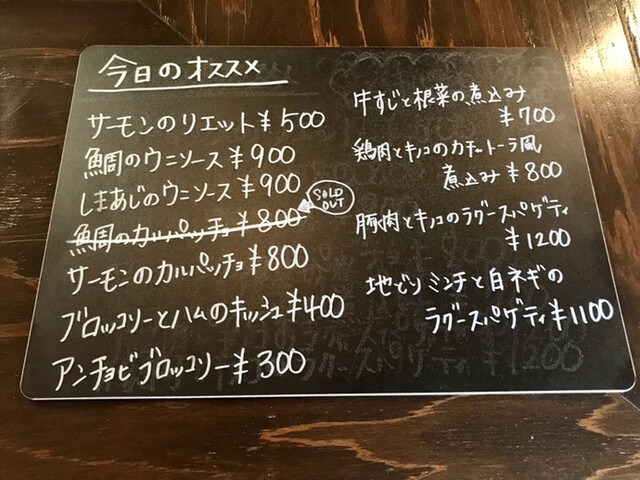 今日のオススメ
サーモンのリエット¥500
鯛のウニソース¥900
しまあじのウニソース¥900
鯛のカルパッチョ¥800
SOLD
OUT
サーモンのカルパッチョ¥800
ブロッコリーとハムのキッシュ¥400
アンチョビブロッコリー¥300
牛すじと根菜の煮込み
¥700
鶏肉とキノコのカチャトーラ風
煮込み¥800
豚肉とキノコのラグースパゲティ
¥1200
地どりミンチと白ネギの
ラグースパゲティ¥1100